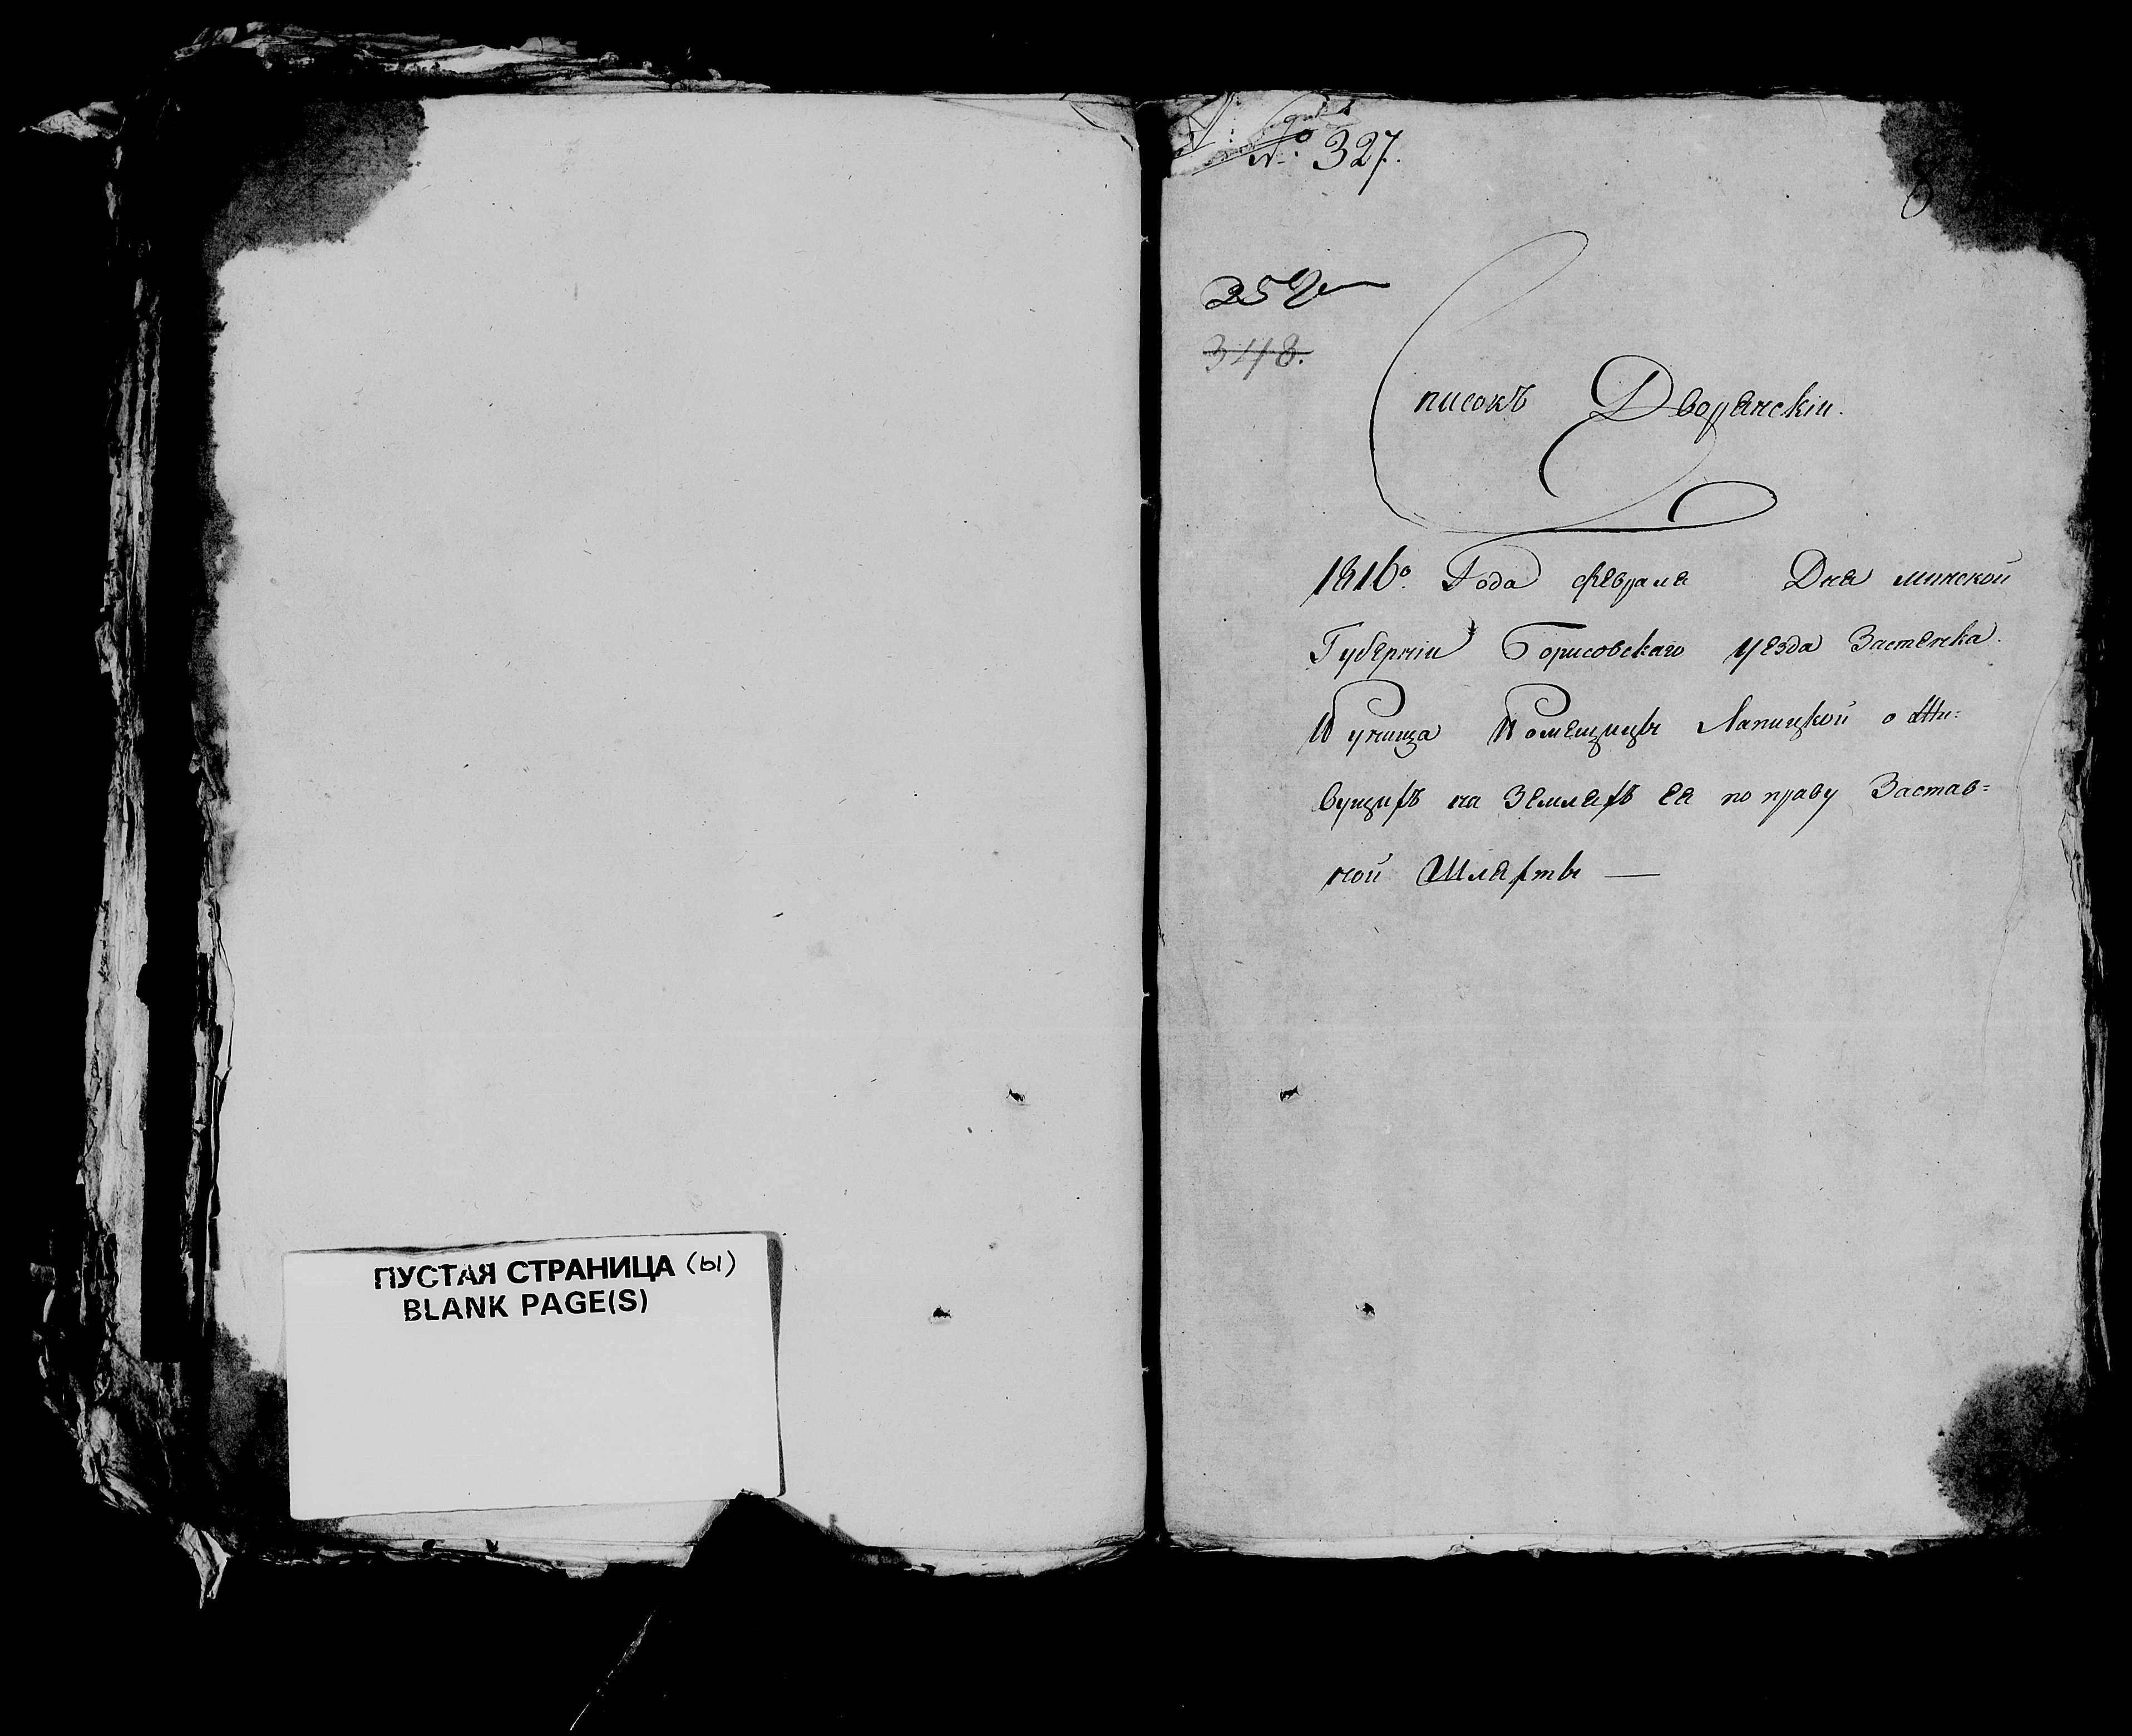 ПУСТАЯ СТРАНИЦА (ы)
BLANK PAGE(S)
№ 327.
348.
Списокъ Дворянскіи.
1816го Года февраля Дня минской
Губерніи Борисовскаго уезда Застенка
Помещицы Лапицкой о Жи=
вущихъ на Земляхъ ея по праву Застав=
ной Шляхты —